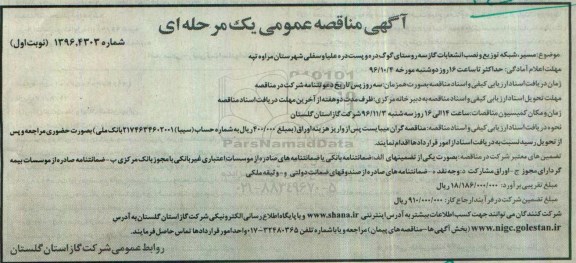 آگهی مناقصه عمومی یک مرحله ای
شماره ۱۳۹۶،۴۳۰۳ (نوبت اول)
موضوع: مسیر، شبکه توزیع و نصب انشعابات گاز سه روستای گوگ دره و پست دره علیا و سفلی شهرستان مراوه تپه
مهلت اعلام آمادگی: حداکثر تا ساعت ۱۶ روز دوشنبه مورخه ۹۶/۱۰/۴
زمان دریافت اسناد ارزیابی کیفی و اسناد مناقصه بصورت همزمان: سه روز پس از تاریخ دعوتنامه شرکت در مناقصه
مهلت تحویل اسناد ارزیابی کیفی و اسناد مناقصه به دبیرخانه مرکزی: ظرف مدت دو هفته از آخرین مهلت دریافت اسناد مناقصه
زمان و مکان کمیسیون مناقصه: ساعت ۱۴ الی ۱۶ روز سه شنبه ۹۶/۱۱/۳ شرکت گاز استان گلستان
نحوه دریافت اسناد ارزیابی کیفی و اسناد مناقصه: مناقصه گران میبایست پس از واریز هزینه اوراق (بمبلغ ۴۰۰/۰۰۰ ریال به شماره حساب (سیبا) ۲۱۷۴۶۳۴۶۰۲۰۰۱ بانک ملی) بصورت حضوری مراجعه و پس
از تحویل رسید نسبت به دریافت اسناد از امور قراردادها اقدام نمایند.
تضامین های معتبر شرکت در مناقصه: بصورت یکی از تضمینهای الف- ضمانتنامه بانکی یا ضمانتنامه های صادره از موسسات اعتباری غیربانکی با مجوز بانک مرکزی ب- ضمانتنامه صادره از موسسات بیمه
گر دارای مجوز ج- اوراق مشارکت د- وجه نقد ه- ضمانتنامه های صادره از صندوقهای ضمانت دولتی و- وثیقه ملکی
مبلغ تقریبی برآورد: ۱۸/۱۸۶/۰۰۰/۰۰۰ ریال
مبلغ تضمین شرکت در فرآیند ارجاع کار: ۹۱۰/۰۰۰/۰۰۰ ریال
شرکت کنندگان می توانند جهت کسب اطلاعات بیشتر به آدرس اینترنتی www.shana.ir و یا پایگاه اطلاع رسانی الکترونیکی شرکت گاز استان گلستان به آدرس
www.nigc.golestan.ir (بخش آگهی ها-مناقصه های پیمان) مراجعه و یا با شماره تلفن ۰۱۷-۳۲۴۸۰۳۶۵ واحد امور قراردادها تماس حاصل فرمایند.
روابط عمومی شرکت گاز استان گلستان
ParsNamadData
۰۲۱-۸۸۳۴۹۶۷۰-۵